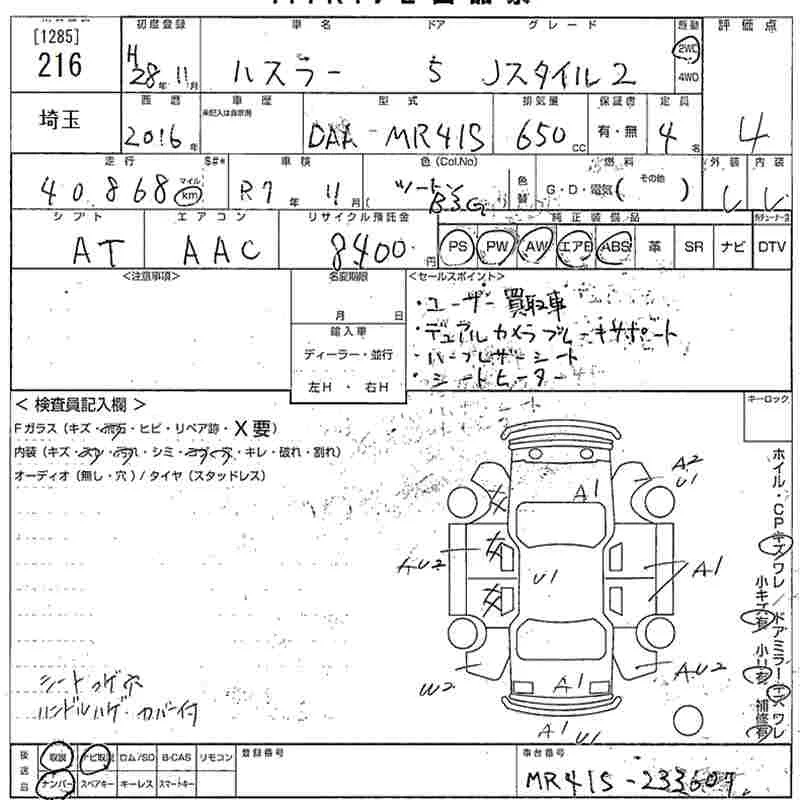 [1285]
216
初度登録 車名 ドア グレード 駆動 評価点
H28年11月 ハスラー 5 Jスタイル2 2WD 4WD
埼玉
西暦 車歴 型式 排気量 保証書 定員
2016年 未記入は自家用 DAA-MR41S 650CC 有・無 4名 4
走行 S#* 車検 色(Col.No) 燃料 外装 内装
40868 マイル km R7年11月( ツートン B3G 色替 G・D・電気( その他 )
シフト エアコン リサイクル預託金 純正装備品
AT AAC 8400円 PS PW AW エアB ABS 革 SR ナビ DTV
<注意事項> 名変期限 <セールスポイント>
月 日
輸入車
ディーラー・並行
左H・右H
・ユーザー買取車
・デュアルカメラブレーキサポート
・ハーフレザーシート
・シートヒーター
<検査員記入欄> キーロック
Fガラス(キズ・飛石・ヒビ・リペア跡・X要)
内装(キズ・スレ・汚れ・シミ・コゲ穴・キレ・破れ・割れ)
オーディオ(無し・穴)/タイヤ(スタッドレス)
A2
U1
A1
AU2
U1
A1
シートコゲ穴
ハンドルハゲ・カバー付
W2
A1
AU2
A1 U1
ホイル・CPキズワレ/ドアミラーキズワレ
小キズ有 小凹有 補修有
後送品 取説 ナビ取説 ロム/SD B-CAS リモコン 登録番号 車台番号
ナンバー スペアキー キーレス スマートキー MR41S-233607